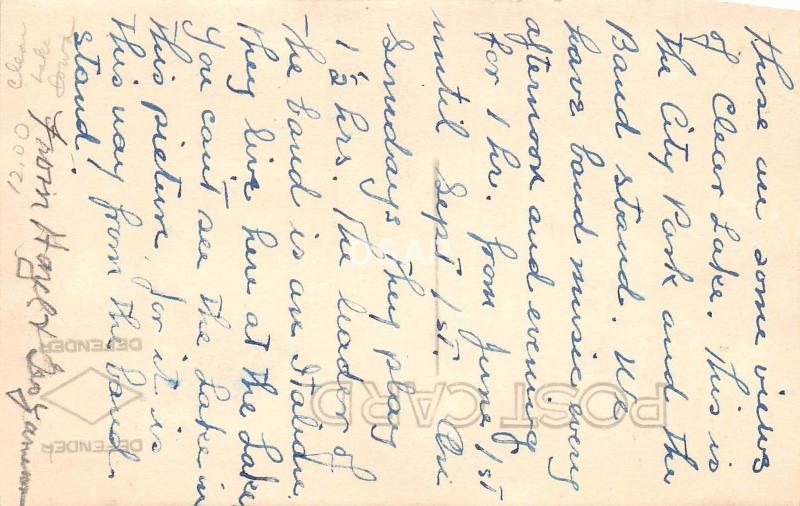 These are some views
of Clear Lake. This is
the City Park and the
Band stand. We
have band music every
afternoon and evening
for 1 hr. from June 1st
until Sept 1st. On
Sundays they play
1½ hrs. The leader of
the band is an Italian.
They live here at the Lake
You can't see the Lake in
this picture, for it is
this way from the band
stand.
From Hazel &
Clear
Lake
Iowa
12.00
POST CARD
DEFENDER
DEFENDER
DSAP